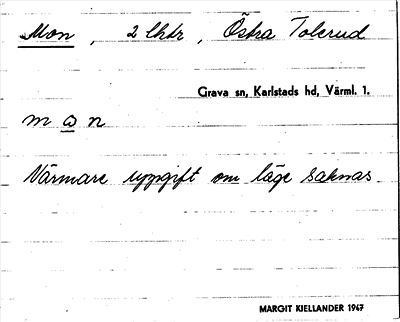 Mon, 2 lhtr, Östra Tolerud
Grava sn, Karlstads hd, Värml. l.
m o n
Närmare uppgift om läge saknas.
MARGIT KIELLANDER 1947